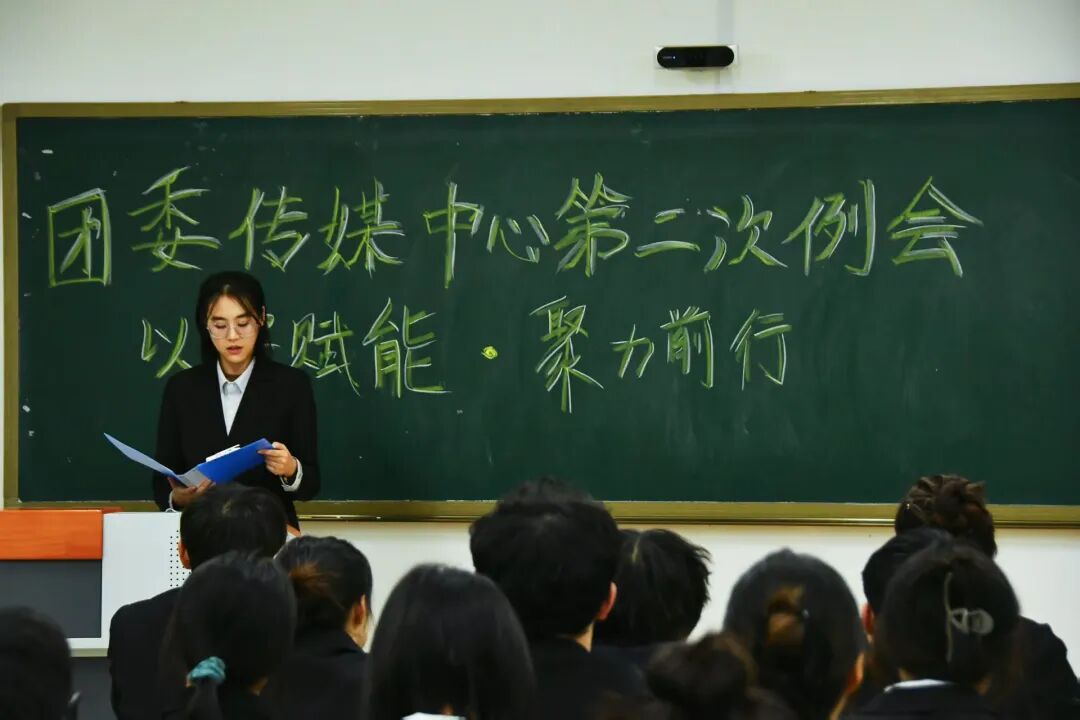 团委传媒中心第二次例会
以 赋能·聚力前行